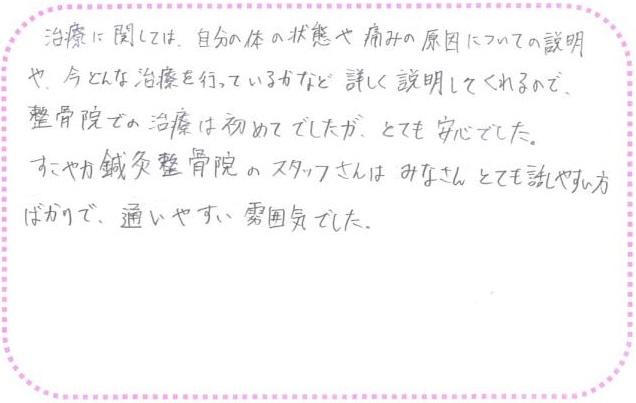 治療に関しては、自分の体の状態や痛みの原因についての説明
や、今どんな治療を行っているかなど詳しく説明してくれるので、
整骨院での治療は初めてでしたが、とても安心でした。
すこやか鍼灸整骨院のスタッフさんはみなさんとても話しやすい方
ばかりで、通いやすい雰囲気でした。